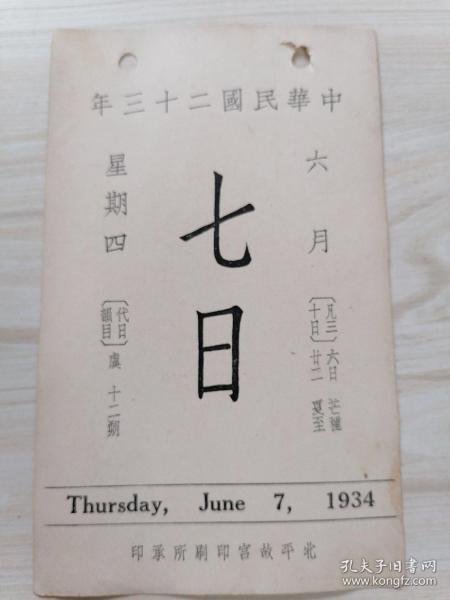 中華民國二十三年
六月
七日
星期四
〔凡三十日〕
六日 芒種
廿二 夏至
〔代日韻目〕
虞 十二期
Thursday, June 7, 1934
北平故宮印刷所承印
孔夫子旧书网
www.kongfz.com